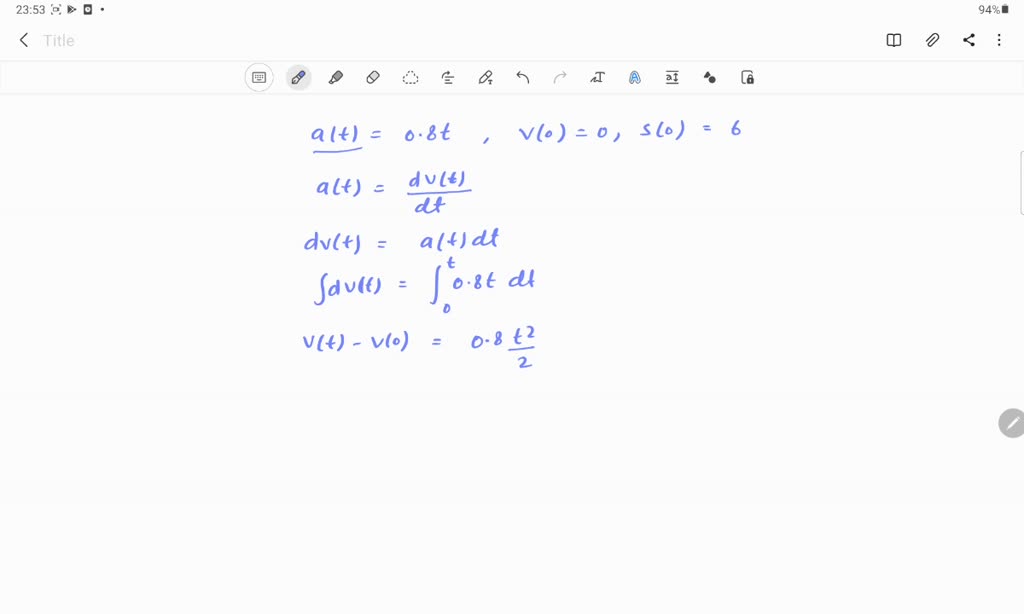 23:53 94%
Title
a(t) = 0.8t , v(0) = 0, s(0) = 6
a(t) = dv(t)/dt
dv(t) = a(t) dt
∫dv(t) = ∫₀ᵗ 0.8t dt
v(t) - v(0) = 0.8 t²/2